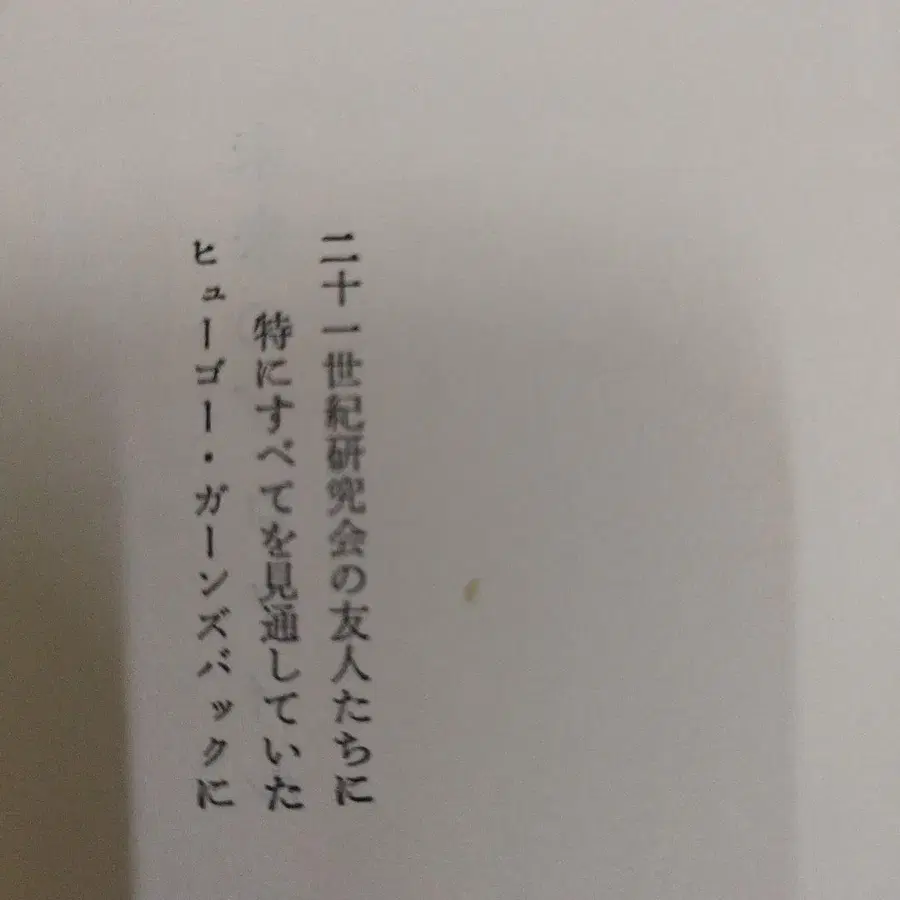 二十一世紀研究会の友人たちに
特にすべてを見通していた
ヒューゴー・ガーンズバックに